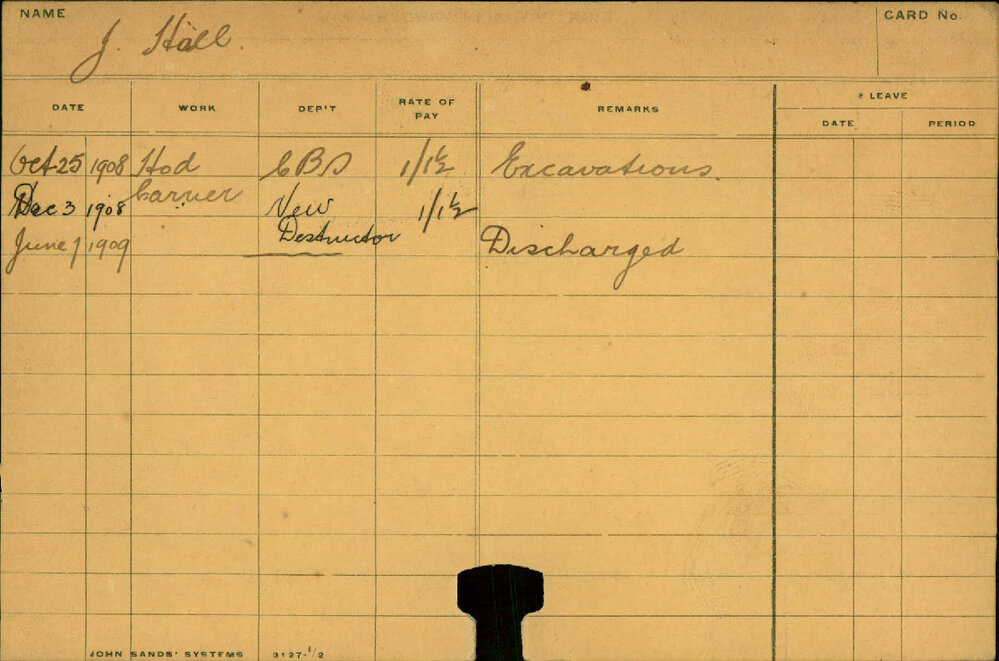 NAME
J. Hall.
CARD No.
DATE WORK DEP'T RATE OF PAY REMARKS LEAVE
DATE PERIOD
Oct 25 1908 Hod CBD 1/1½ Excavations.
Carrier
Dec 3 1908 New 1/1½
Destructor
June 1 1909 Discharged
JOHN SANDS' SYSTEMS 3127-1/2